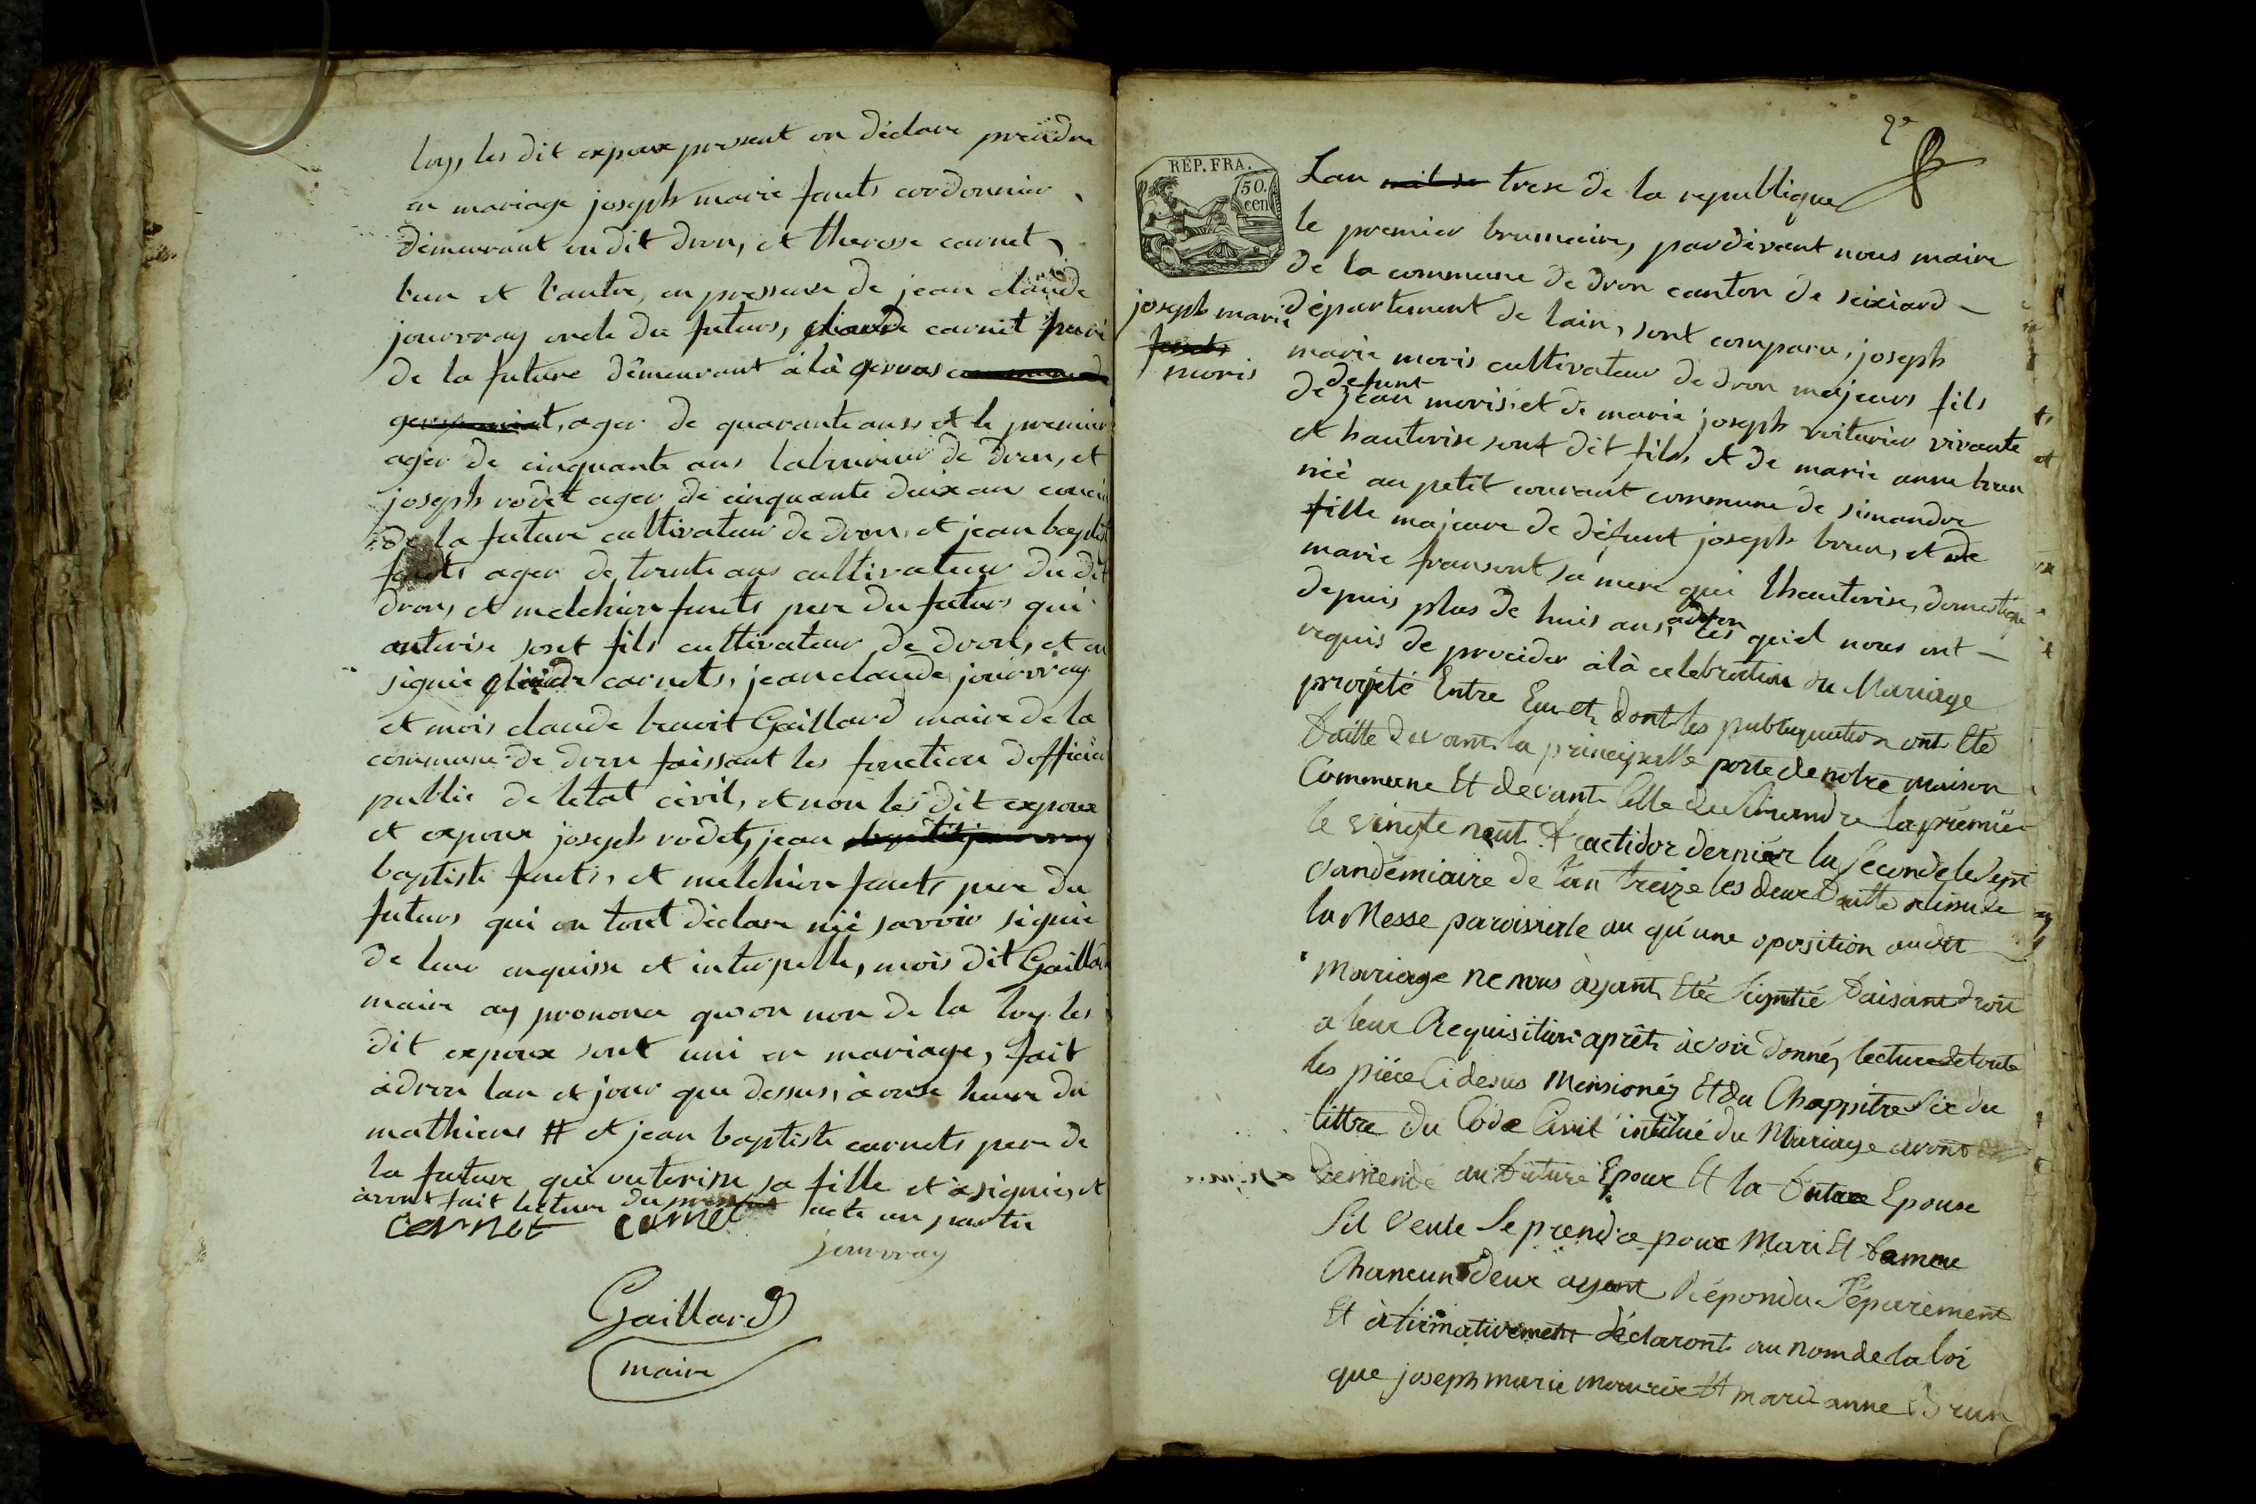 loy, les dit expoux present on déclare preudre
en mariage joseph marie fauts cordonnier
démeurant en dit dron, et theresse carnet
lun et l'autre, en pressence de jean claude
jourvray oncle du futurs, claude carnet
de la future démeurant à là
ager de quarante anss et le premier
ager de cinquante ans laburieur de dron, et
joseph rodet ager de cinquante deix an
de la future cultivateur de dron, et jean baptist
fauts ager de trente ans cultivateur du dit
dron, et melchior fauts pere du futurs qui
auterise sont fils cultivateur de dron, et on
signie claude carnets, jean claude jourvray
et mois claude benoit Gaillard maire de la
commune de dron faissant les fonction d'officié
public de letat civil, et non les dit expoux
et expoux joseph rodet, jean
baptiste fauts, et melchior fauts pere du
futurs qui on tout déclare nié savoir signie
de leur enquisse et interpelle, mois dit Gaillard
maire ay prononce qu'on non de la loy les
dit expoux sont uni en mariage, fait
à dron lan et jour que dessus, à onse heure du
mathiens # et jean baptiste carnets pere de
la future qui auterisse sa fille et a signie, et
avont fait lecture du acte au partie
carnet carnet
jourvray
Gaillard
maire
2e
RÉP. FRA.
50.
cen
joseph marie
fauts
moris
Lan mil se trese de la republique
le premier brumaire, pardevent nous maire
de la commune de dron canton de seixiard
département de lain, sont comparu, joseph
marie moris cultivateur de dron majeurs fils
de defunt jean moris, et de marie joseph voiturier vivante
et hauterise sont dit fils, et de marie anne brun
nié au petit courant commune de simandre
fille majeure de défunt joseph brun, et de
marie fransont sa mere qui l'hauterise, domestique
depuis plus de huis ans, a dron les quel nous ont
requis de proceder à là celebration du Mariage
projeté Entre Eux et dont les publiquation ont Eté
faitte devant la principalle porte de notre maison
Commune Et devant Celle de Simandre la première
le vingte neut fructidor dernier la seconde le Sept
vandémiaire de l'an treize les deux faitte a lissue de
la Messe paroisiale au qu'une oposition audit
Mariage ne nous àyant Eté Signifié faisant droit
a leur Requisition aprèt àvoir donnéz lecture de toute
les pièce Cidesus Mensionéz Et du Chappitre Six du
tittre du Code Civil intitulé du Mariage avont
Demendé au future Epoux Et la future Epouse
Sil Veule Se prendre pour Mari Et famme
Chancun deux ayant Répondu Séparément
Et àfirmativement déclaront au nom de la loi
que joseph marie mauris Et marie anne Brun